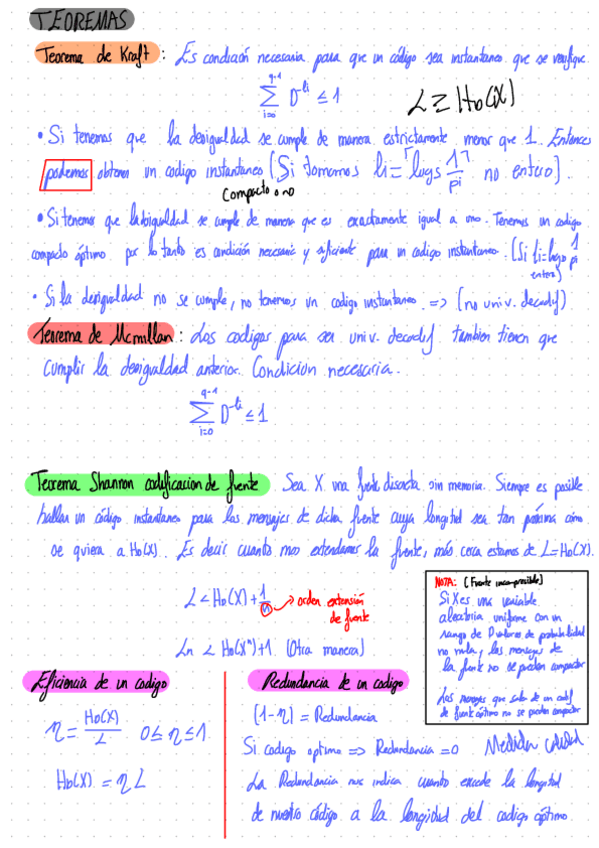 TEOREMAS
Teorema de Kraft: Es condición necesaria para que un código sea instantaneo que se verifique
q-1
∑ D^-li ≤ 1
i=0
L ≥ HD(X)
• Si tenemos que la desigualdad se cumple de manera estrictamente menor que 1. Entonces
podemos obtener un codigo instantaneo (Si tomamos li = ⌈log 1/pi⌉ no entero).
Compacto o no
• Si tenemos que la desigualdad se cumple de manera que es exactamente igual a uno. Tenemos un codigo
compacto óptimo. por lo tanto es condición necesaria y suficiente para un codigo instantaneo. (Si li = log 1/pi
entero)
• Si la desigualdad no se cumple, no tenemos un codigo instantaneo. => (no univ. decodif)
Teorema de Mcmillan: Los codigos para ser univ. decodif tambien tienen que
cumplir la desigualdad anterior. Condición necesaria.
q-1
∑ D^-li ≤ 1
i=0
Teorema Shannon codificacion de fuente Sea X una fuente discreta sin memoria. Siempre es posible
hallar un código instantaneo para los mensajes de dicha fuente cuya longitud sea tan próxima como
se quiera a HD(X). Es decir cuanto mas extendamos la fuente, más cerca estamos de L=HD(X).
L < HD(X) + 1/n → orden extensión
de fuente
Ln < HD(X^n)+1 (Otra manera)
NOTA: (Fuente incompresible)
Si X es una variable
aleatoria uniforme con un
rango de D valores de probabilidad
no nula, los mensajes de
la fuente no se pueden compactar
Los mensajes que salen de un codif
de fuente óptimo no se pueden compactar
Eficiencia de un codigo
η = HD(X)/L 0 ≤ η ≤ 1
HD(X) = η L
Redundancia de un codigo
(1-η) = Redundancia
Si codigo optimo => Redundancia = 0 Medida calidad
La Redundancia nos indica cuanto excede la longitud
de nuestro código a la longitud del codigo óptimo.